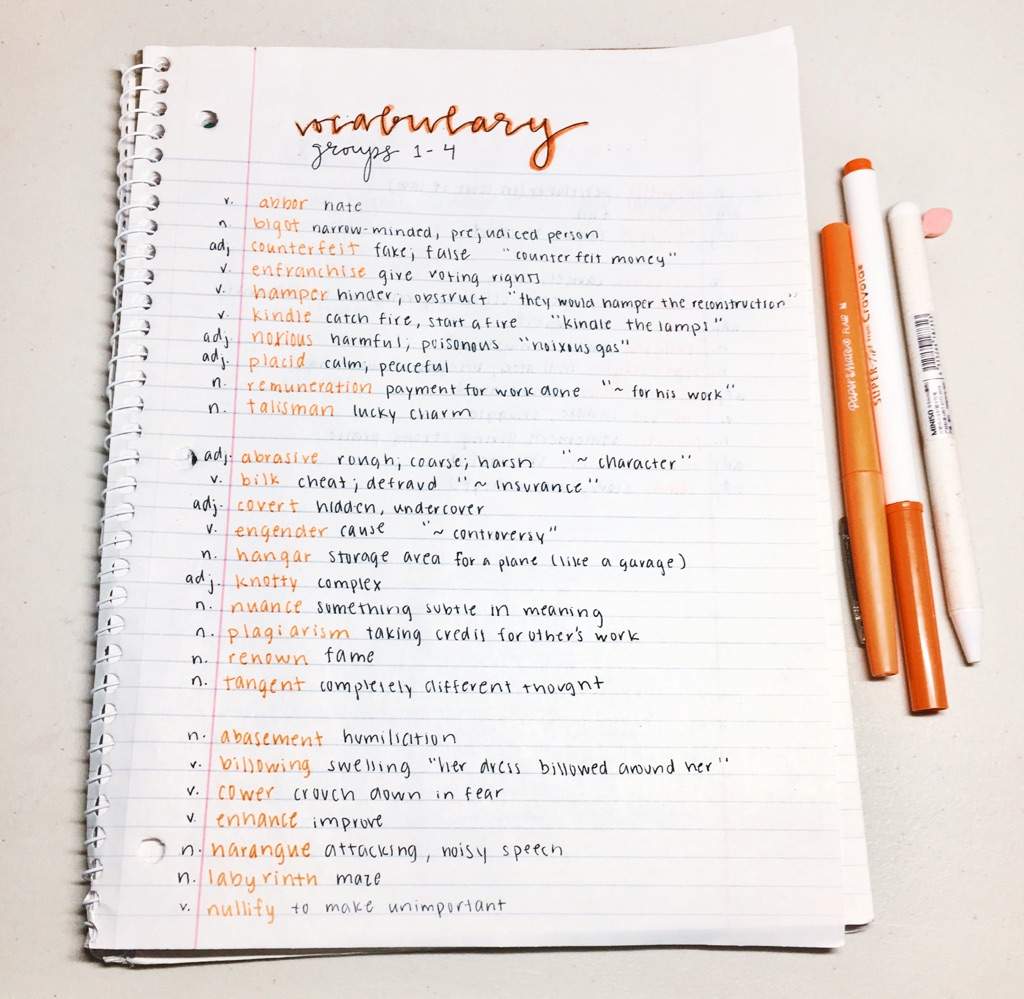 vocabulary
groups 1-4
v. abhor hate
n bigot narrow-minded, prejudiced person
adj counterfeit fake; false "counterfeit money"
v. enfranchise give voting rights
v. hamper hinder; obstruct "they would hamper the reconstruction"
v. kindle catch fire, start a fire "kindle the lamps"
adj. noxious harmful; poisonous "noixous gas"
adj. placid calm; peaceful
n. remuneration payment for work done "~ for his work"
n. talisman lucky charm
adj. abrasive rough; coarse; harsh "~ character"
v. bilk cheat; defraud "~ insurance"
adj. covert hidden, undercover
v. engender cause "~ controversy"
n. hangar storage area for a plane (like a garage)
adj. knotty complex
n. nuance something subtle in meaning
n. plagiarism taking credit for other's work
n. renown fame
n. tangent completely different thought
n. abasement humiliation
v. billowing swelling "her dress billowed around her"
v. cower crouch down in fear
v. enhance improve
n. harangue attacking, noisy speech
n. labyrinth maze
v. nullify to make unimportant
PaperMate FLAIR M
SUPER Crayola
MINISO